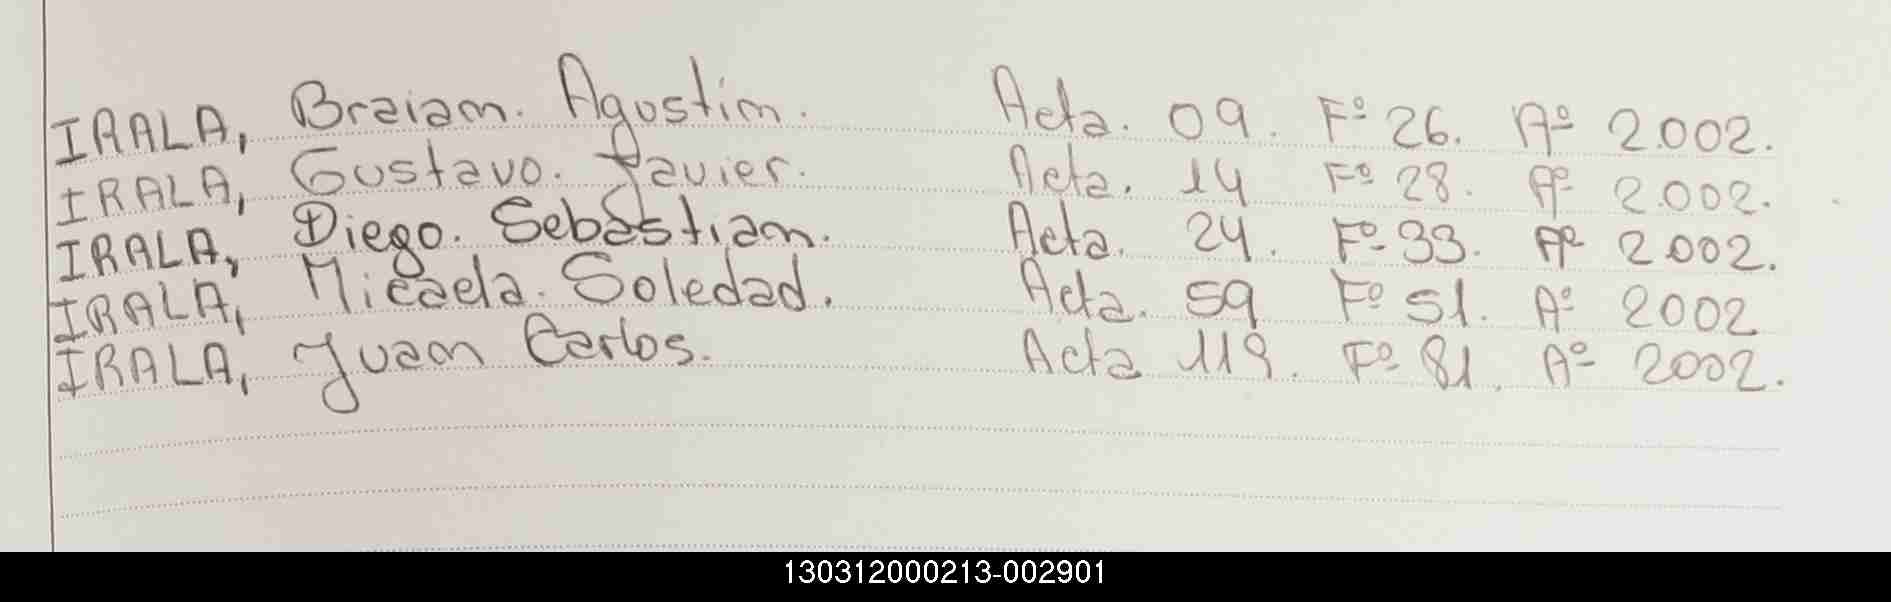 IRALA, Braian. Agustin. Acta. 09. Fº 26. Aº 2.002.
IRALA, Gustavo. Javier. Acta. 14 Fº 28. Aº 2.002.
IRALA, Diego. Sebastian. Acta. 24. Fº 33. Aº 2.002.
IRALA, Micaela. Soledad. Acta. 59 Fº 51. Aº 2002
IRALA, Juan Carlos. Acta 119. Fº 81. Aº 2002.
130312000213-002901